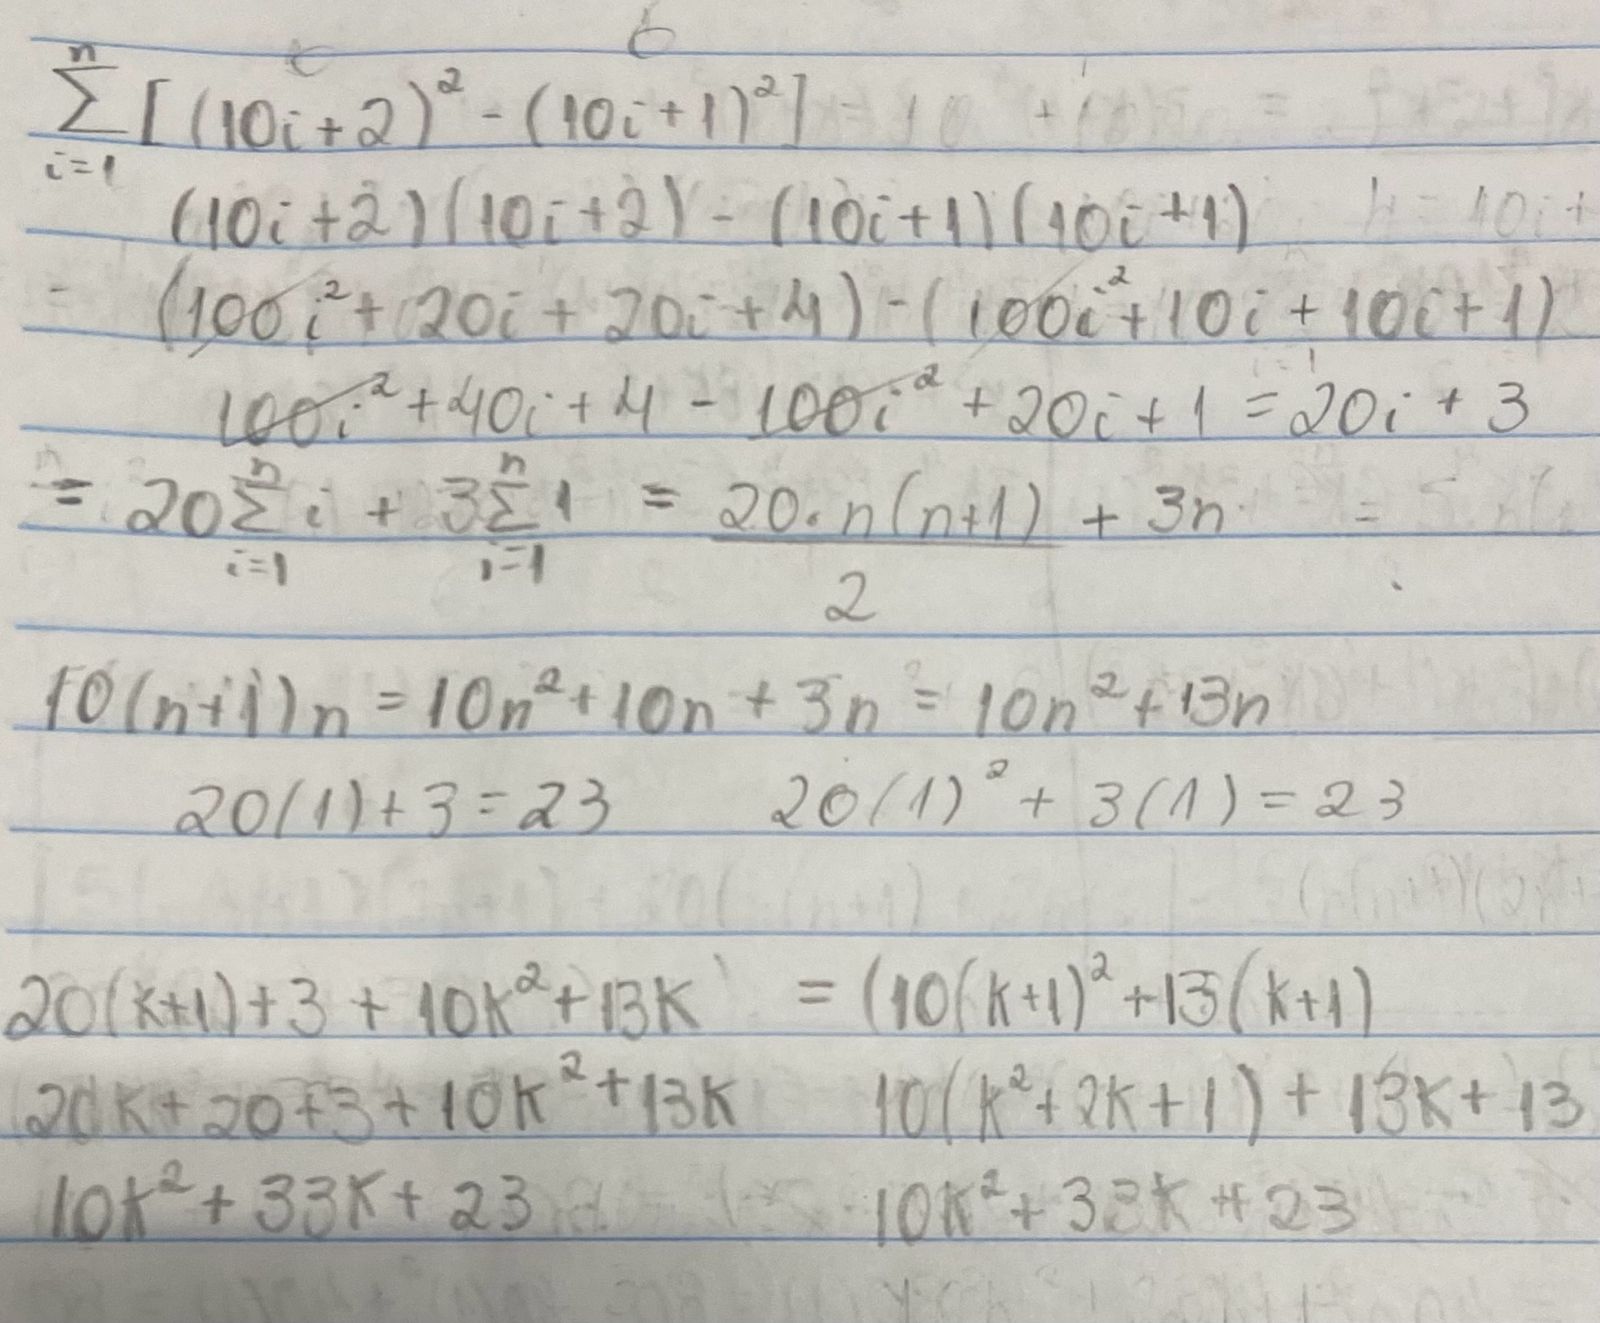 ∑_{i=1}^{n} [(10i+2)² - (10i+1)²]
(10i+2)(10i+2) - (10i+1)(10i+1)
= (100i² + 20i + 20i + 4) - (100i² + 10i + 10i + 1)
100i² + 40i + 4 - 100i² + 20i + 1 = 20i + 3
= 20 ∑_{i=1}^{n} i + 3 ∑_{i=1}^{n} 1 = 20·n(n+1)/2 + 3n =
10(n+1)n = 10n² + 10n + 3n = 10n² + 13n
20(1) + 3 = 23 20(1)² + 3(1) = 23
20(k+1) + 3 + 10k² + 13k = (10(k+1)² + 13(k+1)
20k + 20 + 3 + 10k² + 13k 10(k² + 2k + 1) + 13k + 13
10k² + 33k + 23 10k² + 33k + 23